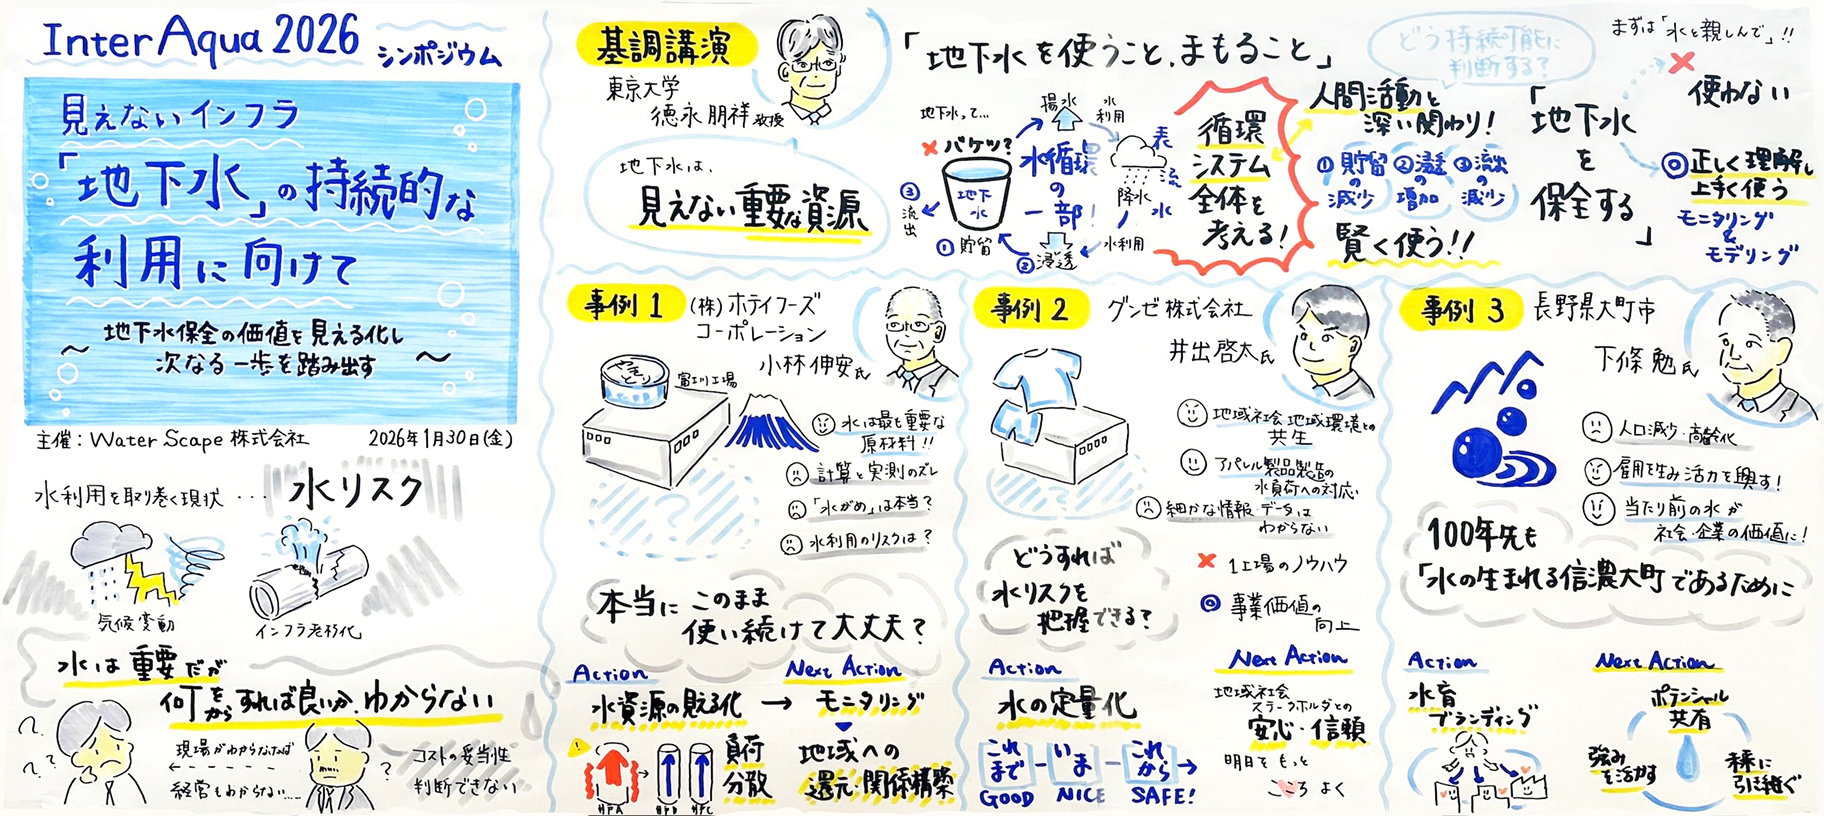 InterAqua 2026
シンポジウム
見えないインフラ
「地下水」の持続的な
利用に向けて
～地下水保全の価値を見える化し
次なる一歩を踏み出す～
主催：Water Scape 株式会社
2026年1月30日(金)
水利用を取り巻く現状…
水リスク
気候変動
インフラ老朽化
水は重要だが
何をすれば良いか、わからない
から
?
?
現場がわからなければ
経営もわからない……
?
コストの妥当性
判断できない
基調講演
東京大学
徳永朋祥教授
地下水は、
見えない重要な資源
「地下水を使うこと、まもること」
地下水って…
×バケツ?
地下水
③流出
①貯留
②浸透
揚水
水利用
水循環の一部!
表流水
降水
水利用
循環
システム
全体を
考える!
どう持続可能に
判断する?
人間活動と
深い関わり!
①貯留の減少
②浸透の増加
③流出の減少
賢く使う!!
「地下水
を
保全する」
まずは「水を親しんで」!!
×使わない
◎正しく理解し
上手く使う
モニタリング
&
モデリング
事例1
(株)ホテイフーズ
コーポレーション
小林伸安氏
やきとり
富川工場
水は最も重要な
原材料!!
計算と実測のズレ
「水がめ」は本当?
水利用のリスクは?
本当にこのまま
使い続けて大丈夫?
Action
水資源の見える化
→
Next Action
モニタリング
地域への
還元・関係構築
負荷
分散
井戸A
井戸B
井戸C
事例2
グンゼ株式会社
井出啓太氏
地域社会・地域環境との
共生
アパレル製品製造の
水負荷への対応
細かな情報・データは
わからない
どうすれば
水リスクを
把握できる?
×1工場のノウハウ
◎事業価値の
向上
Action
水の定量化
これまで
いま
これから
GOOD
NICE
SAFE!
Next Action
地域社会
ステークホルダとの
安心・信頼
明日をもっと
こころよく
事例3
長野県大町市
下條勉氏
人口減少・高齢化
雇用を生み活力を興す!
当たり前の水が
社会・企業の価値に!
100年先も
「水の生まれる信濃大町であるために
Action
水育
ブランディング
Next Action
ポテンシャル
共有
強み
を活かす
未来に
引き継ぐ